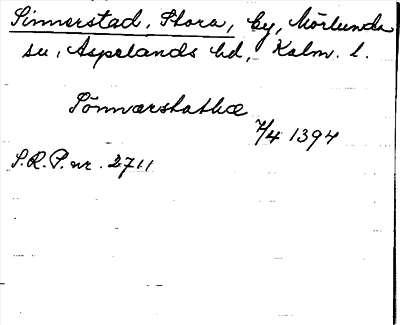 Sinnerstad, Stora, by, Mörlunda
sn, Aspelands hd, Kalm. l.
Sönnærstathæ
7/4 1394
S.R.P. nr. 2711